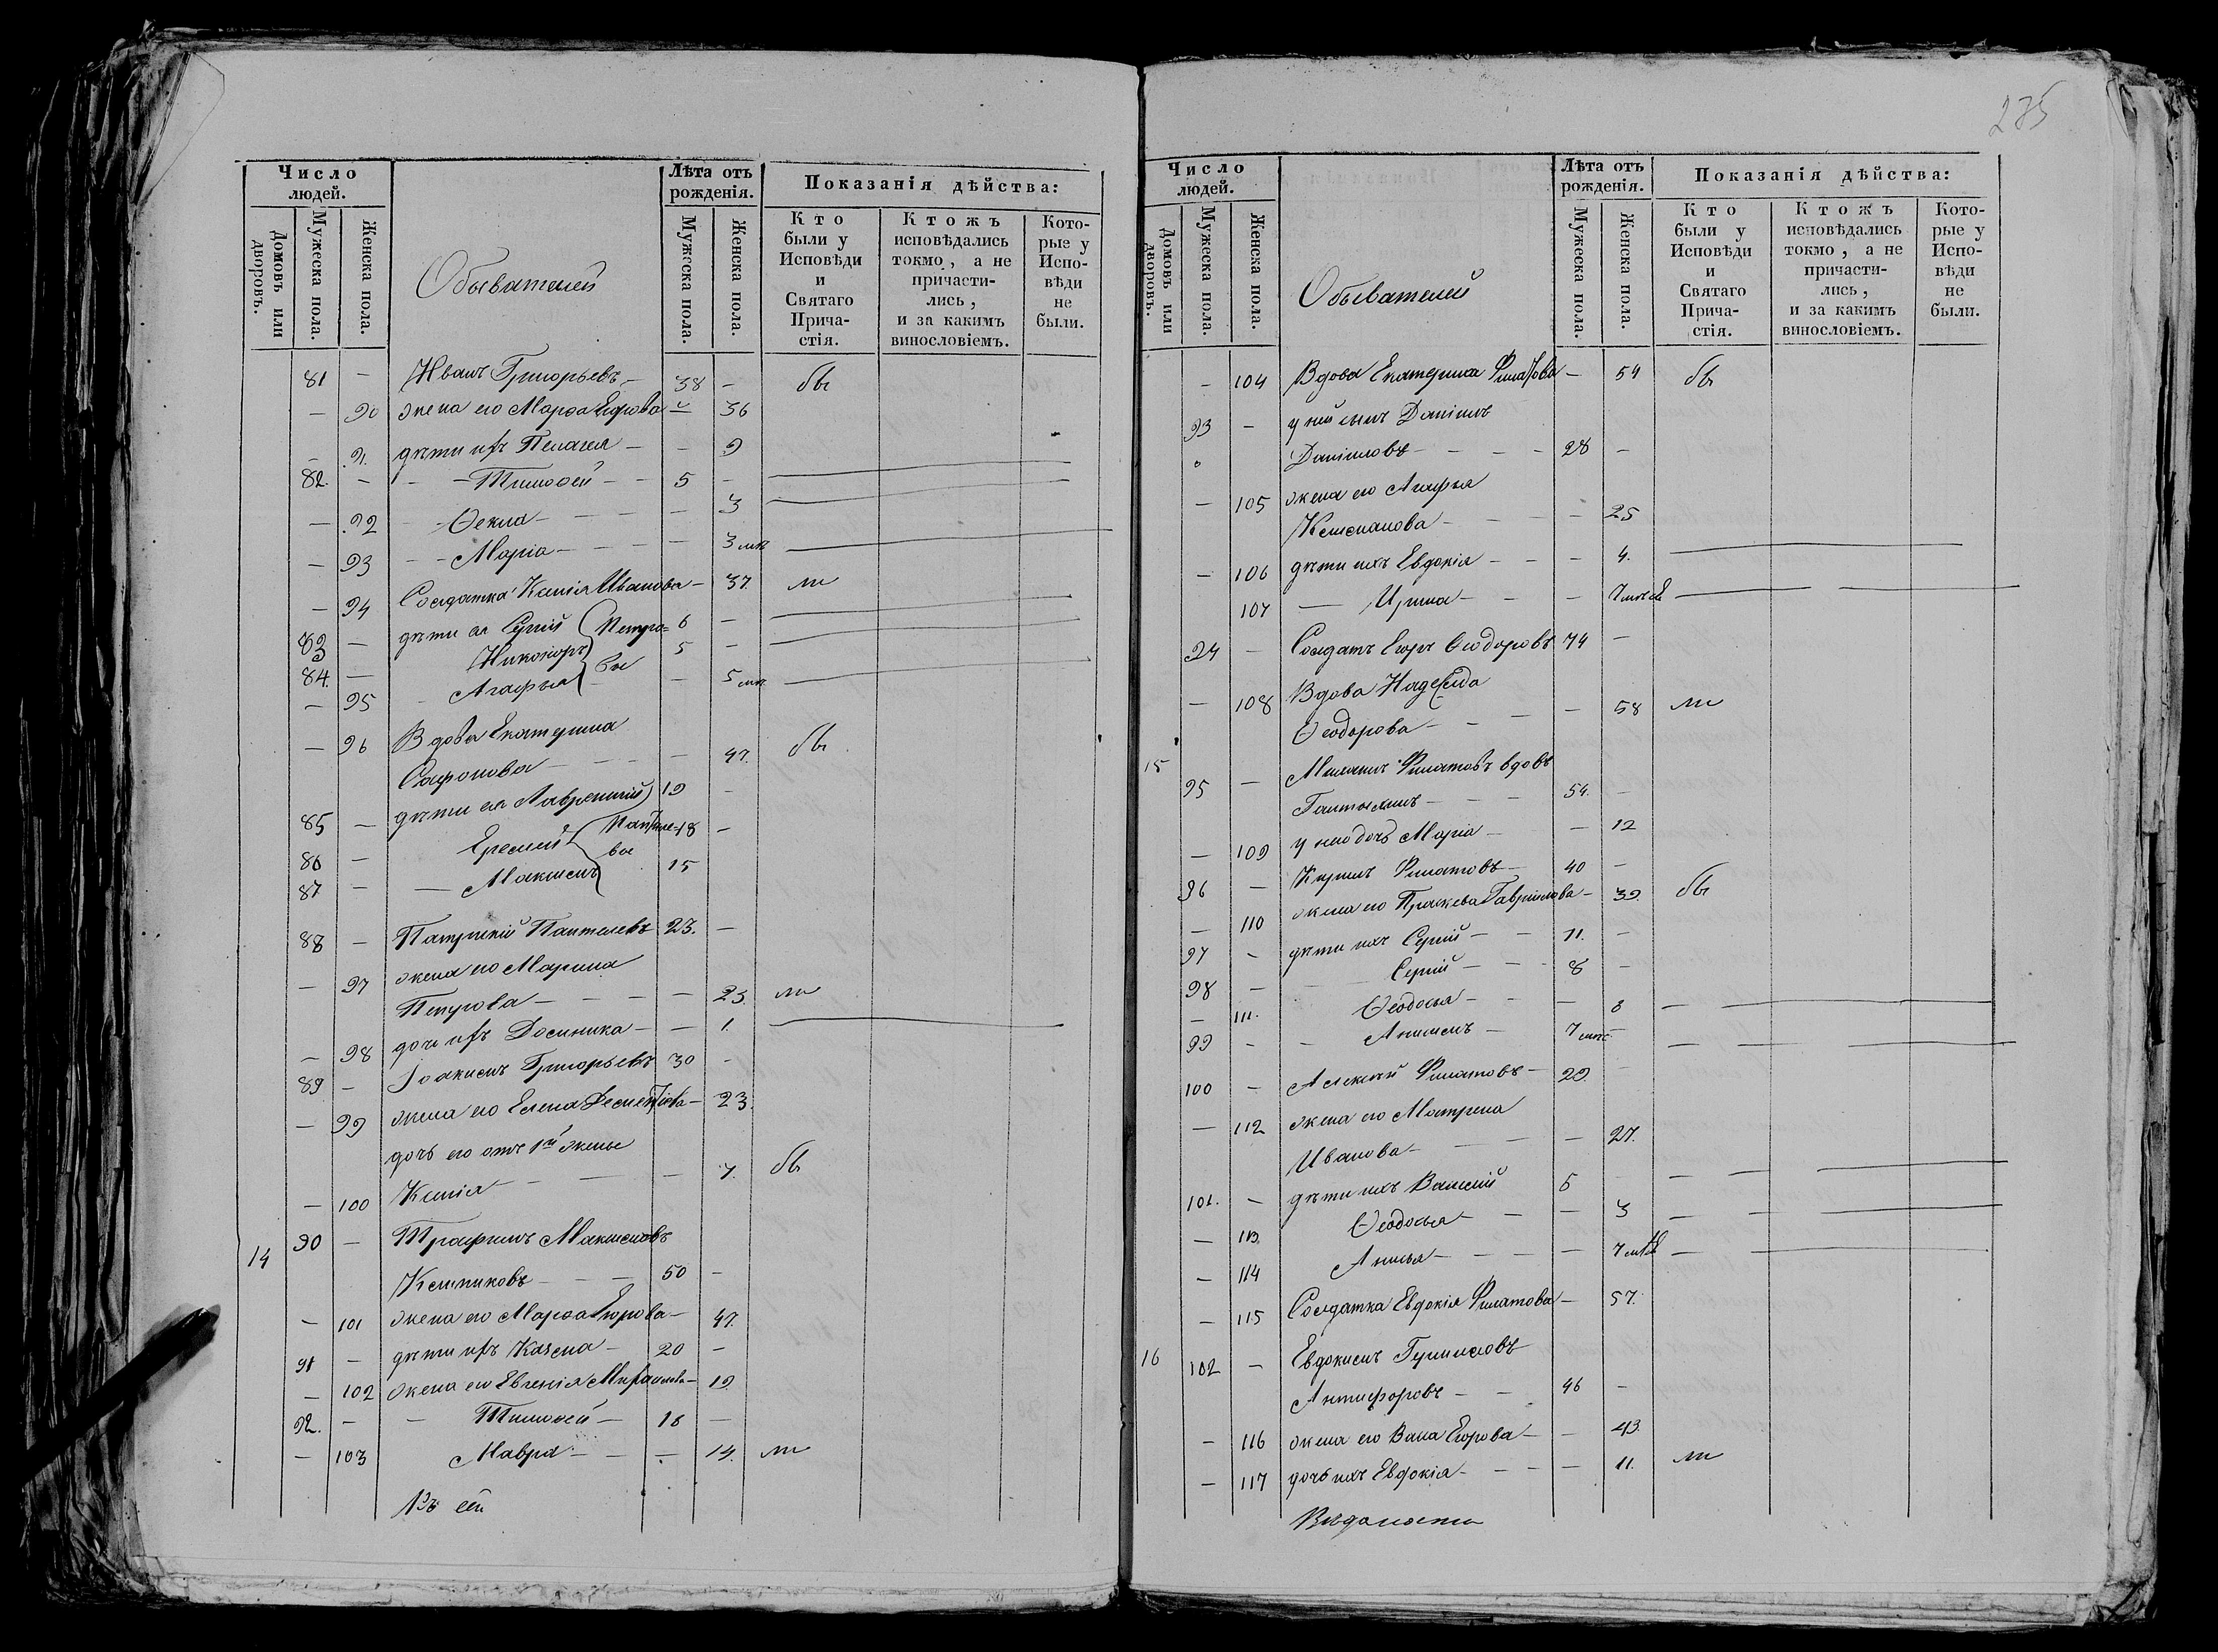 Число людей.
Домовъ или дворовъ.
Мужеска пола.
Женска пола.
Обывателей
Лѣта отъ рожденія.
Мужеска пола.
Женска пола.
Показанія дѣйства:
Кто были у Исповѣди и Святаго Причастія.
Ктожъ исповѣдались токмо, а не причастились, и за какимъ винословіемъ.
Которые у Исповѣди не были.
81 — Иванъ Григорьевъ — 38 — бы
— 90 жена его Марѳа — 36
— 91. дѣти ихъ Пелагея — — 9
82. — — Тимоѳей — — 5 —
— 92 — Ѳекла — — — — 3
— 93 — Марія — — — — 3 мѣс
— 94 Солдатка Ксенія Иванова — 37. ли
83 — дѣти ея Сергій Петро= 6 —
84. — Никоноръ вы 5 —
— 95 Агафья — — 5 мѣс
— 96 Вдова Екатерина
Сафонова — — — — 47. бы
85 — дѣти ея Лаврентій 19 —
86 — Еремей Пантеле= 18 —
87 — — Максимъ вы 15
88 — Патрикій Пантелевъ 23. —
— 97 жена его Марина
Петрова — — — — 23. ли
— 98 дочь ихъ Домника — — 1.
89 — Іоакимъ Григорьевъ 30 —
— 99 жена его Елена — 23.
дочь его отъ 1й жены
— 100 Ксенія — — — 7. бы
14 90 — Трафимъ Максимовъ
— — 50 —
— 101 жена его Марѳа Егорова — 47.
91 — дѣти ихъ — 20 —
— 102 жена его Евгенія — 19.
92. — — Тимоѳей — 18 —
— 103 Мавра — — — 14. ли
Въ сей
235
Число людей.
Домовъ или дворовъ.
Мужеска пола.
Женска пола.
Обывателей
Лѣта отъ рожденія.
Мужеска пола.
Женска пола.
Показанія дѣйства:
Кто были у Исповѣди и Святаго Причастія.
Ктожъ исповѣдались токмо, а не причастились, и за какимъ винословіемъ.
Которые у Исповѣди не были.
— 104 Вдова Екатерина — 54 бы
93 — у ней сынъ Даніилъ
Даниловъ — — — — 28 —
— 105 жена его Агафья
— — — 25
— 106 дѣти ихъ Евдокія — — — 4.
107 — Ирина — — — 7 мѣс
94 — Солдатъ Егоръ Ѳеодоровъ 74 —
— 108 Вдова Надежда
Ѳеодорова — — — — 58 ли
15 95 — Филатовъ вдовъ
— — — 54. —
— 109 у него дочь Марія — — 12
96 — Кирилъ Филатовъ — 40 —
— 110 жена его Гаврилова — 39. бы
97 — дѣти ихъ Сергій — — 11. —
98 — Сергій — — — 8 —
— 111. Ѳеодосья — — — 3
99 — — Анисимъ — 7 мѣс —
100 — Алексѣй Филатовъ — 29. —
— 112 жена его Матрена
Иванова — — — — 27.
101. — дѣти ихъ Василій 5 —
— 113. Ѳеодосья — — — 3
— 114 Анисья — — — — 7 мѣс
— 115 Солдатка Евдокія Филатова — 57.
16 102 — Евдокимъ
— — 46 —
— 116 жена его Егорова — — 43.
— 117 дочь ихъ Евдокія — — — — 11. ли
Вѣдомости